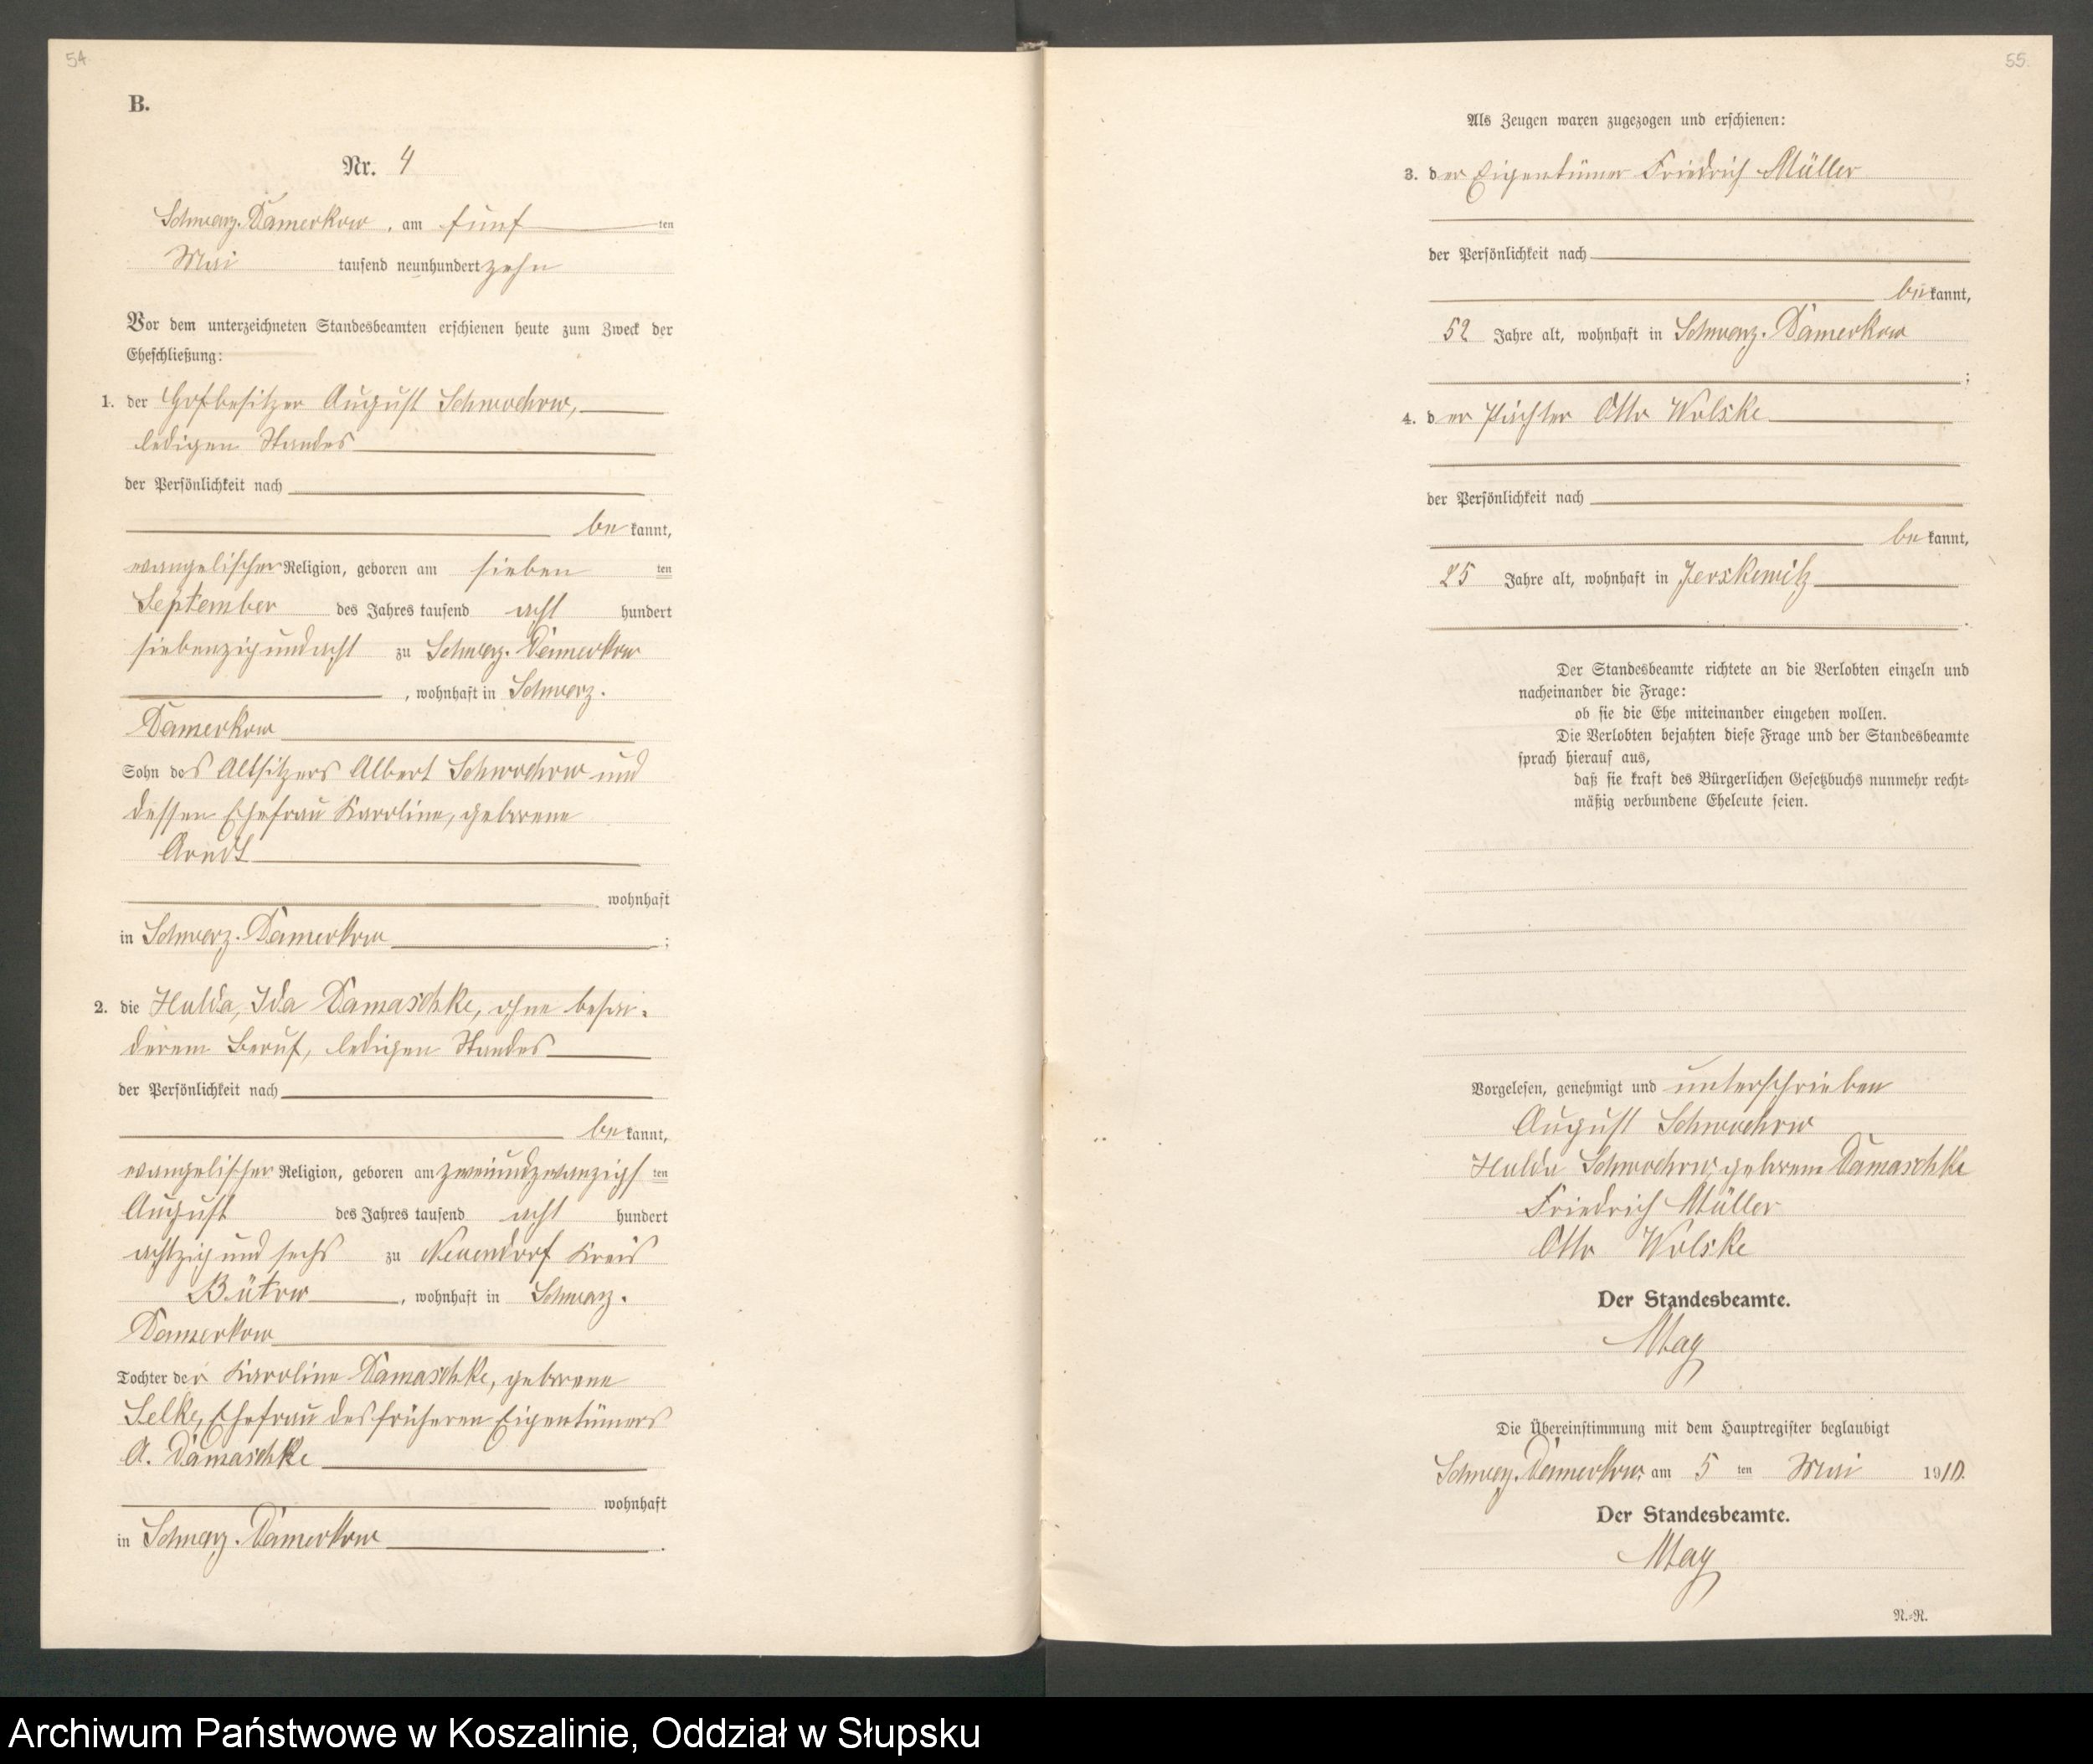 54
B.
Nr. 4
Schwarz-Damerkow, am fünf ten
Mai tausend neunhundert zehn
Vor dem unterzeichneten Standesbeamten erschienen heute zum Zweck der
Eheschließung:
1. der Hofbesitzer August Schwochow,
ledigen Standes
der Persönlichkeit nach
be kannt,
evangelischer Religion, geboren am sieben ten
September des Jahres tausend acht hundert
siebenzig und acht zu Schwarz-Damerkow
, wohnhaft in Schwarz-
Damerkow
Sohn des Altsitzers Albert Schwochow und
dessen Ehefrau Karoline, geborene
Arndt
wohnhaft
in Schwarz-Damerkow ;
2. die Hulda, Ida Damaschke, ohne beson-
deren Beruf, ledigen Standes
der Persönlichkeit nach
be kannt,
evangelischer Religion, geboren am zweiundzwanzigs ten
August des Jahres tausend acht hundert
achtzig und sechs zu Neuendorf Kreis
Bütow , wohnhaft in Schwarz-
Damerkow
Tochter der Karoline Damaschke, geborene
Selke, Ehefrau des früheren Eigentümers
A. Damaschke
wohnhaft
in Schwarz-Damerkow .
55.
Als Zeugen waren zugezogen und erschienen:
3. der Eigentümer Friedrich Müller
der Persönlichkeit nach
be kannt,
52 Jahre alt, wohnhaft in Schwarz-Damerkow
;
4. der Pächter Otto Wolske
der Persönlichkeit nach
be kannt,
25 Jahre alt, wohnhaft in Jerskewitz
.
Der Standesbeamte richtete an die Verlobten einzeln und
nacheinander die Frage:
ob sie die Ehe miteinander eingehen wollen.
Die Verlobten bejahten diese Frage und der Standesbeamte
sprach hierauf aus,
daß sie kraft des Bürgerlichen Gesetzbuchs nunmehr recht-
mäßig verbundene Eheleute seien.
Vorgelesen, genehmigt und unterschrieben
August Schwochow
Hulda Schwochow, geborene Damaschke
Friedrich Müller
Otto Wolske
Der Standesbeamte.
May
Die Übereinstimmung mit dem Hauptregister beglaubigt
Schwarz-Damerkow, am 5 ten Mai 1910.
Der Standesbeamte.
May
N.-N.
Archiwum Państwowe w Koszalinie, Oddział w Słupsku